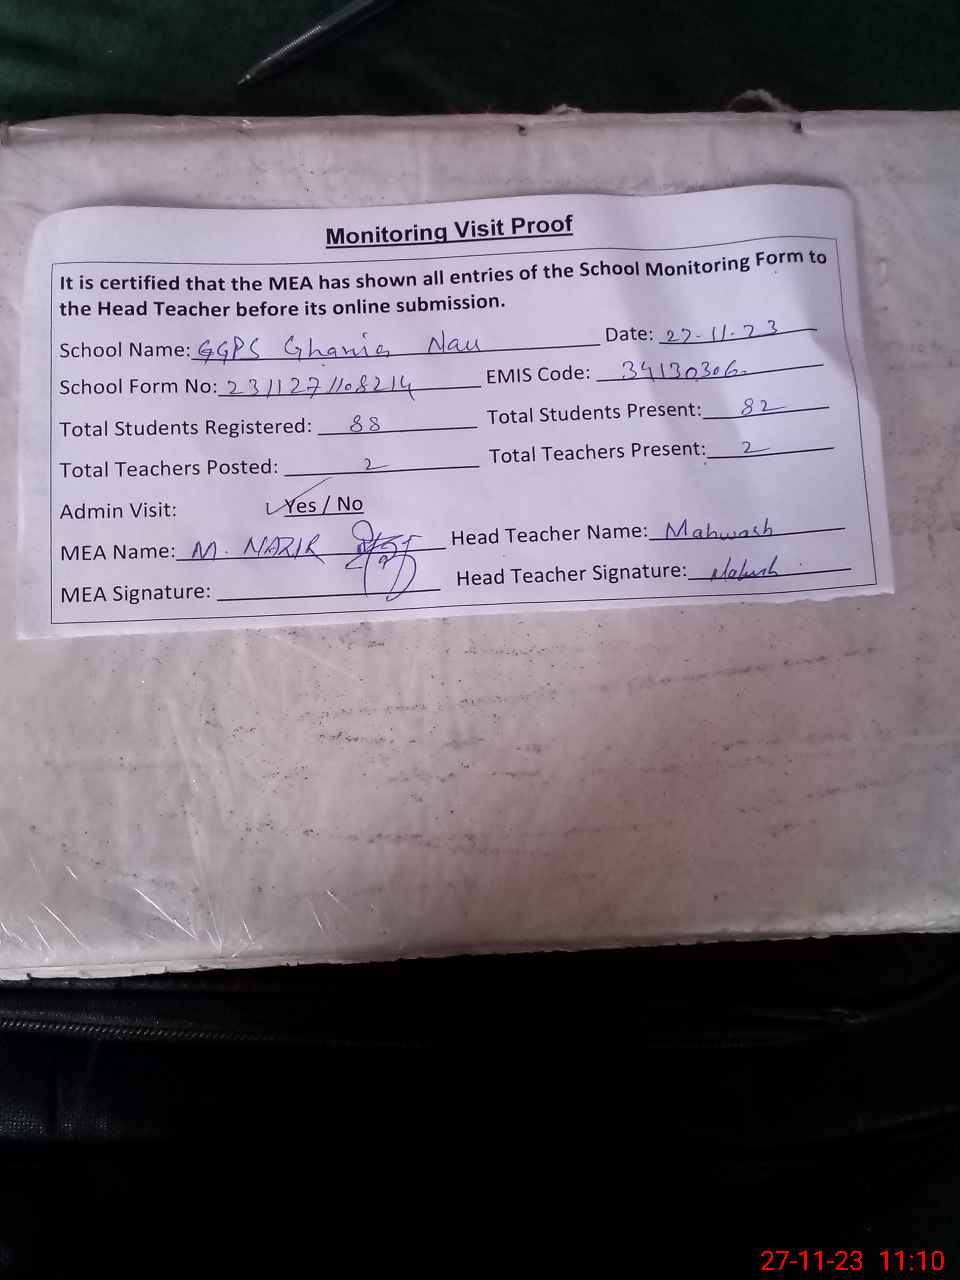 Monitoring Visit Proof
It is certified that the MEA has shown all entries of the School Monitoring Form to
the Head Teacher before its online submission.
School Name: GGPS Ghania Nau Date: 27-11-23
School Form No: 2311271108214 EMIS Code: 34130306
Total Students Registered: 88 Total Students Present: 82
Total Teachers Posted: 2 Total Teachers Present: 2
Admin Visit: Yes / No
MEA Name: M. NAZIR Head Teacher Name: Mahwash
MEA Signature: Head Teacher Signature:
27-11-23 11:10